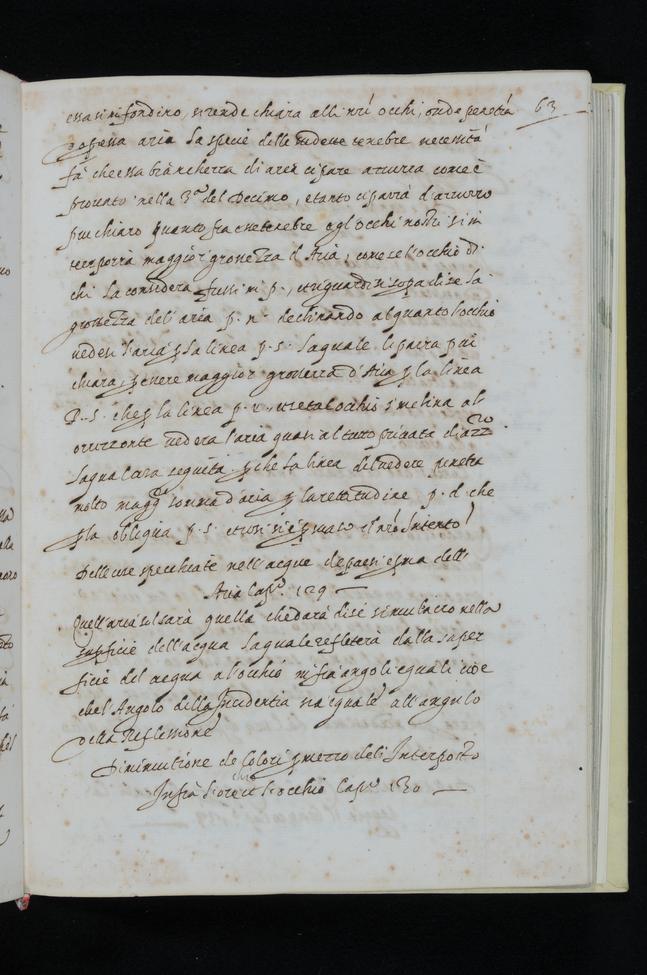 63
essa si infondino, si rende chiara alli nrî occhi, onde penetrã
p essa aria la specie delle sudette tenebre necessità
fà che essa bianchezza di aria ci pare azzurra come è
prouato nella 3.ª del Decimo, e tanto ci parrà d'azzurro
piu chiaro quanto fra esse tenebre e gl'occhi nostri s'in
terporrà maggior grossezza d'Aria, come se l'occhio di
chi la considera fussi in p., et riguardassi sopa di se la
grossezza del'aria p. n. declinando alquanto l'occhio
uedesi l'aria p la linea p. s. laquale li parra piu
chiara, p essere maggior grossezza d'Aria p la linea
p. s. che p la linea p. n., et se tal occhio s'inclina al
orizzonte uedera l'aria quasi al tutto priuata di azz.ro
laqual cosa seguita p che la linea del uedere penetra
molto magg.r somma d'aria p la rettitudine p. d. che
p la obliqua p. s. et cosi si è psuaso il nrô Intento
Delle cose specchiate nell'acque de paesi e p.ma dell'
Aria Cap.º 129
Quell'aria sol sarà quella che darà di se simulacro nella
supficie dell'acqua laquale refleterà dalla super
ficie del acqua al occhio infrà angoli equali cioe
che l'Angolo della Incidentia sia equale all'angulo
della Reflessione
Diminuitione de Colori p mezzo deli Interposto
Infrà loro et l'occhio Cap.º 130